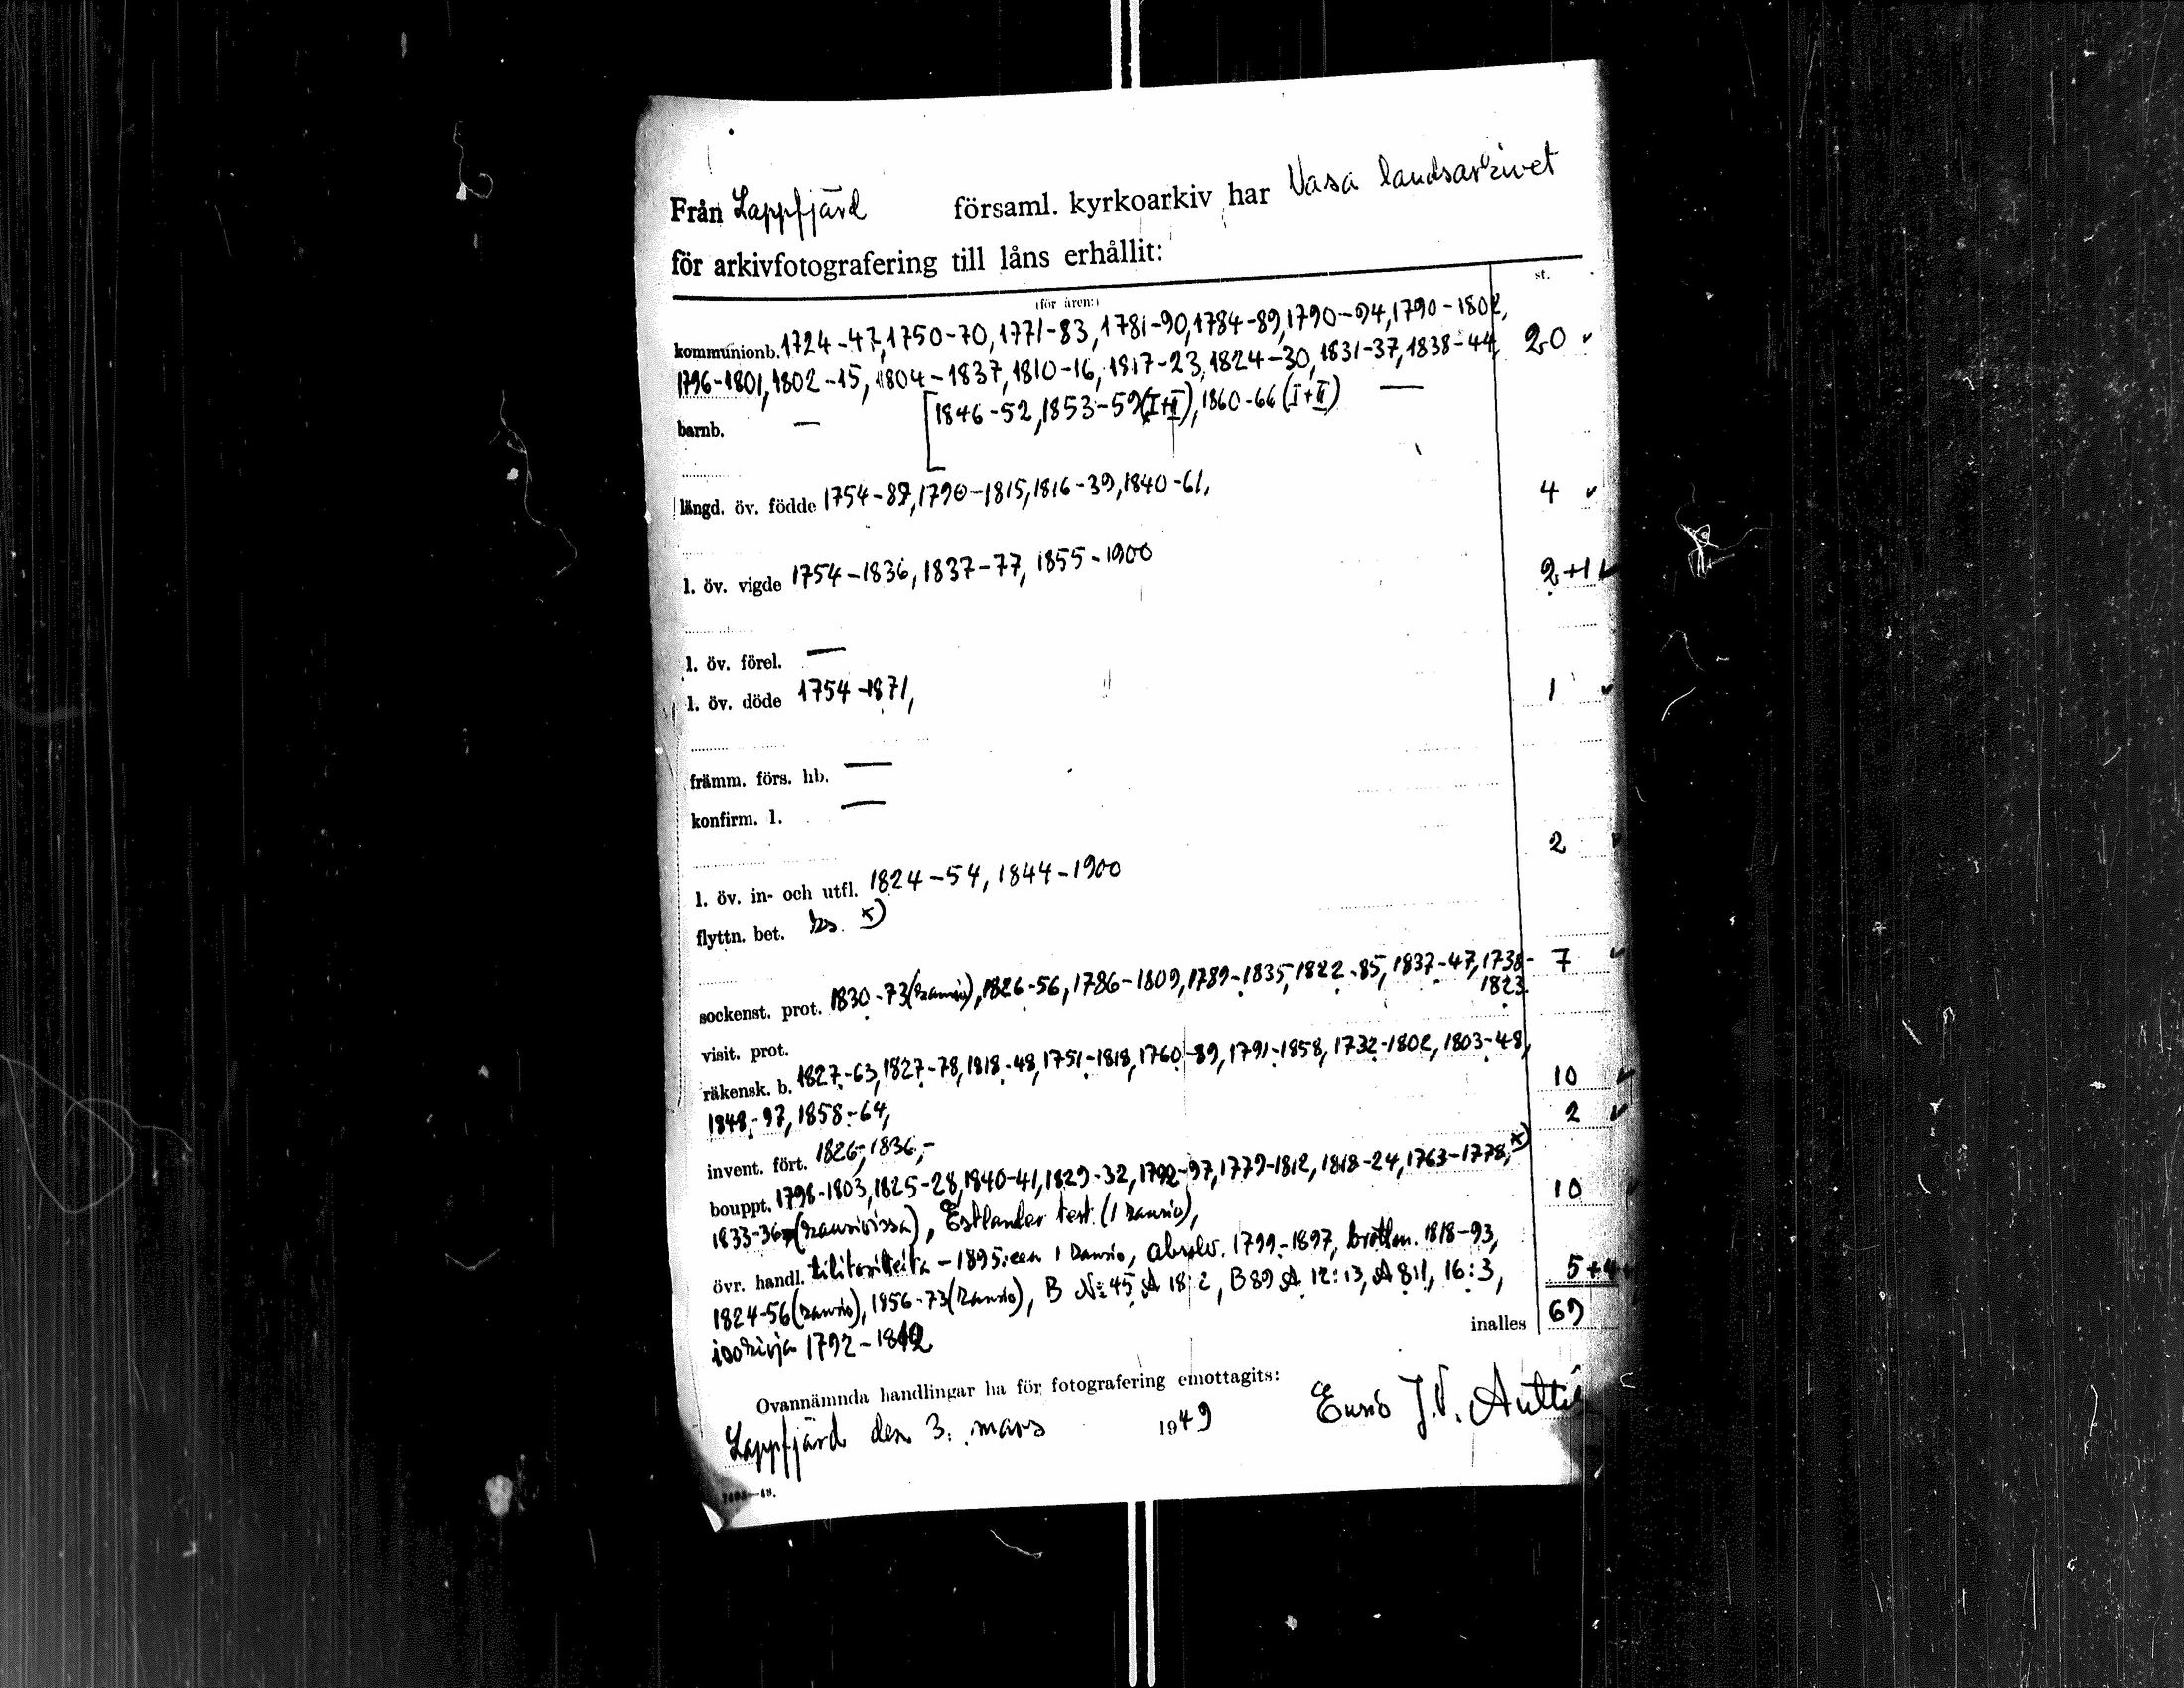 Från Lappfjärd församl. kyrkoarkiv har Vasa landsarkivet
för arkivfotografering till låns erhållit:
(för åren:) st.
kommunionb. 1724-47, 1750-70, 1771-83, 1781-90, 1784-89, 1790-94, 1790-1802, 20
1796-1801, 1802-15, 1804-1837, 1810-16, 1817-23, 1824-30, 1831-37, 1838-44,
[1846-52, 1853-59 (I+II), 1860-66 (I+II) —
barnb. —
längd. öv. födde 1754-89, 1790-1815, 1816-39, 1840-61, 4
l. öv. vigde 1754-1836, 1837-77, 1855-1900 2+1
l. öv. förel. —
l. öv. döde 1754-1871, 1
främm. förs. hb. —
konfirm. l. —
l. öv. in- och utfl. 1824-54, 1844-1900 2
flyttn. bet. ks. x)
sockenst. prot. 1830-73 (kansio), 1826-56, 1786-1809, 1789-1835, 1822-85, 1837-47, 1738- 7
1823.
visit. prot.
räkensk. b. 1827-63, 1827-78, 1818-48, 1751-1818, 1760-89, 1791-1858, 1732-1802, 1803-48, 10
1848-97, 1858-64,
invent. fört. 1826-, 1836,- 2
bouppt. 1798-1803, 1825-28, 1840-41, 1829-32, 1792-97, 1779-1812, 1818-24, 1763-1778, x) 10
1833-36 (kansioissa), Estlander test. (1 kansio),
övr. handl. tilitositteita -1895:een 1 kansio, absolv. 1799-1897, brottm. 1818-93,
1824-56 (kansio), 1856-73 (kansio), B No 45 A 18:2, B 89 A 12:13, A 8:1, 16:3, 5+4
isokirja 1792-1812
inalles 69
Ovannämnda handlingar ha för fotografering emottagits:
Lappfjärd den 3. mars 1949 J.V.